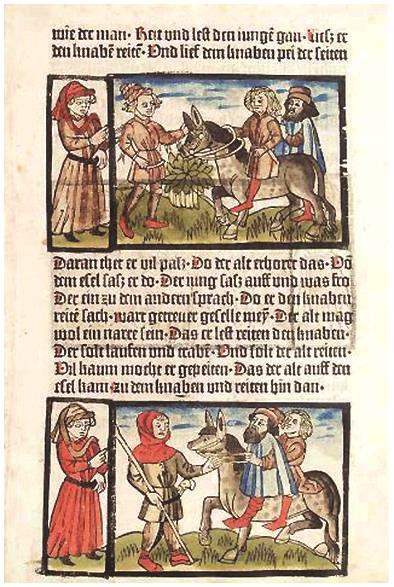 wie der man. Reit vnd lest den iungē gan. Liesz er
den knabē reitē. Vnd lief dem knaben pei der seiten
Daran thet er vil pasz. Do der alt erhoret das. Vō
dem esel sasz er do. Der iung sasz auff vnd was fro
Der ein zu dem andern sprach. Do er den knaben
reitē sach. wart getreuer geselle mey̅. Der alt mag
wol ein narre sein. Das er lest reiten den knaben.
Der solt laufen vnd trabē. Vnd solt der alt reiten.
Vil kaum mocht er gepeiten. Das der alt auff den
esel kam. zu dem knaben vnd reiten hin dan.